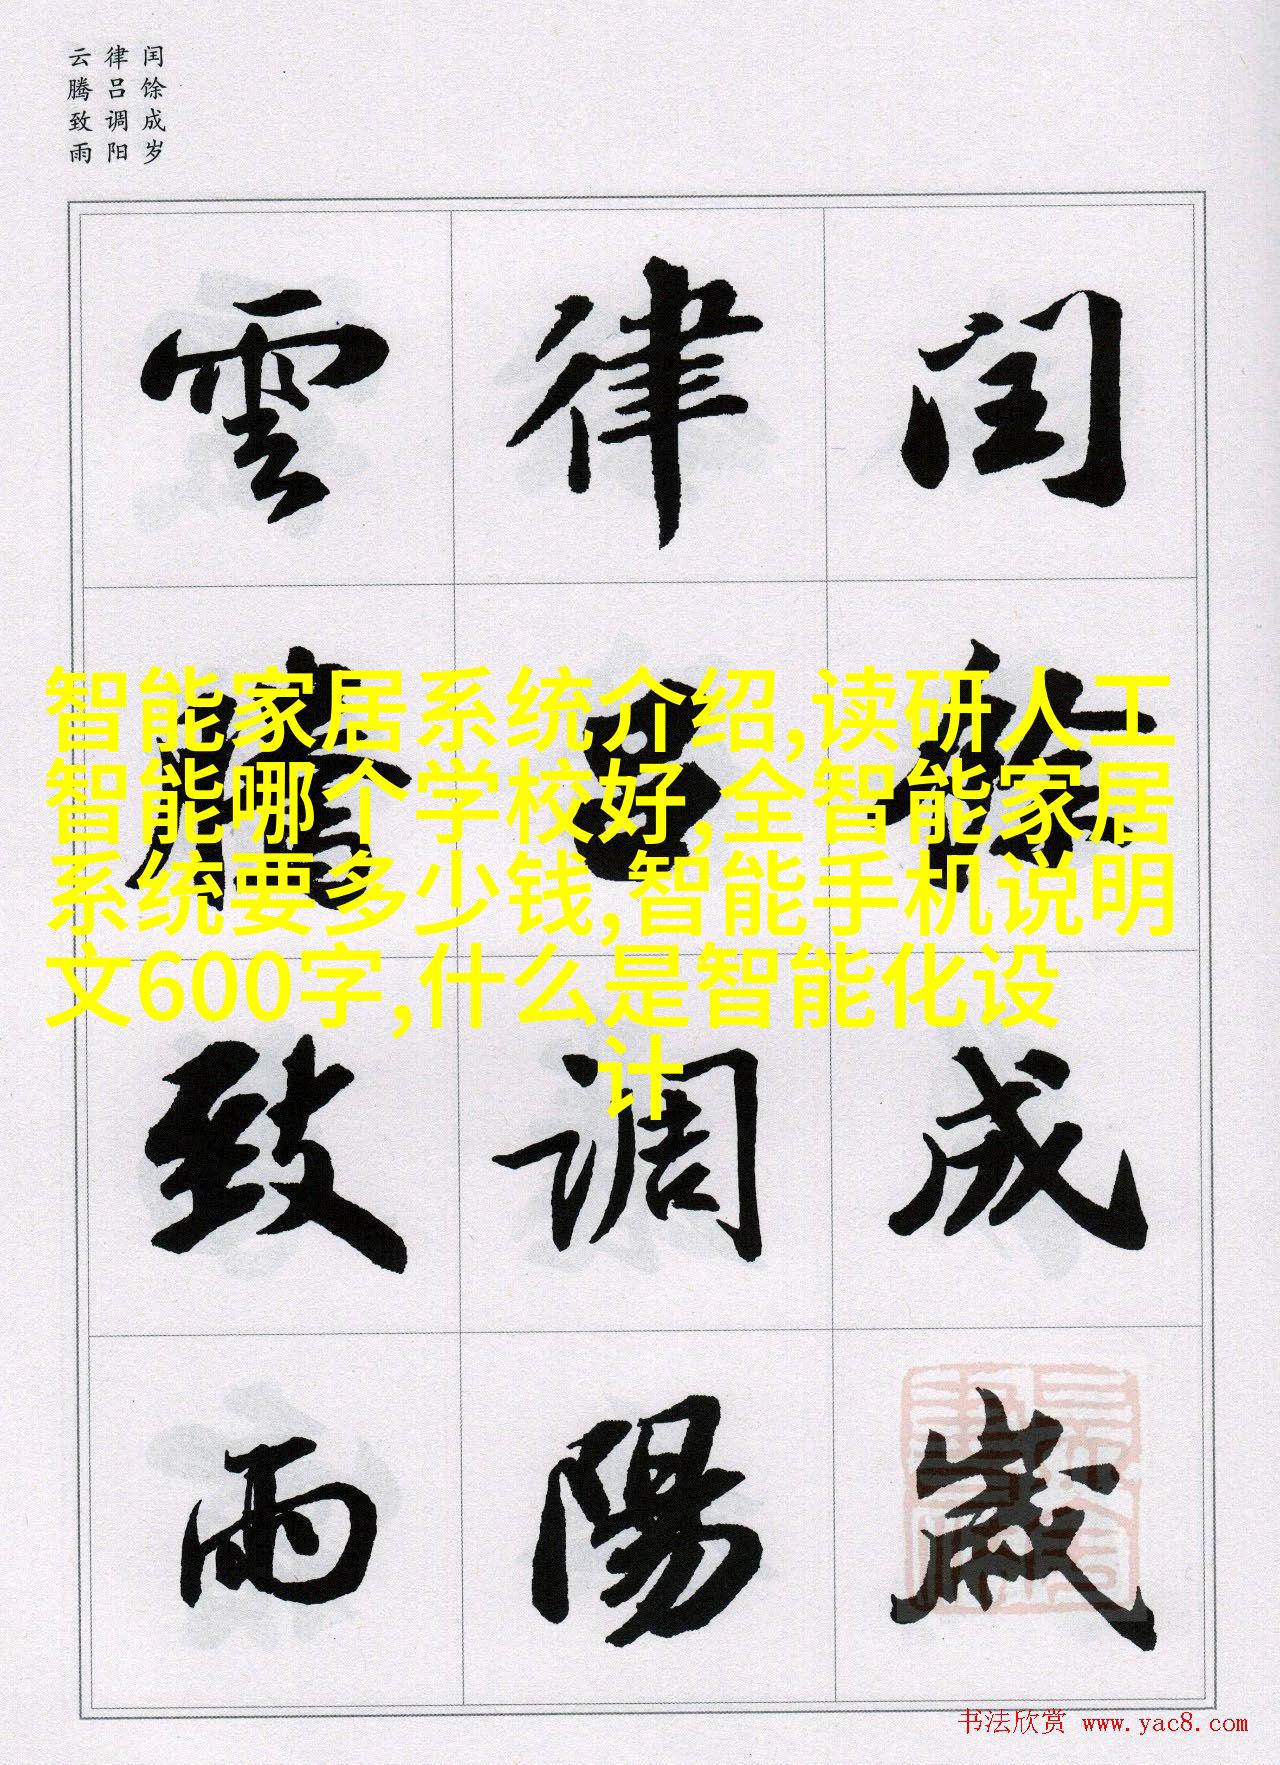 闰馀成岁
律吕调阳
云腾致雨
闰餘成歲
律吕调陽
雲騰致雨
智能家居系统介绍,读研人工
智能哪个学校好,全智能家居
系统要多少钱,智能手机说明
文600字,什么是智能化设
计
书法欣赏 www.yac8.com